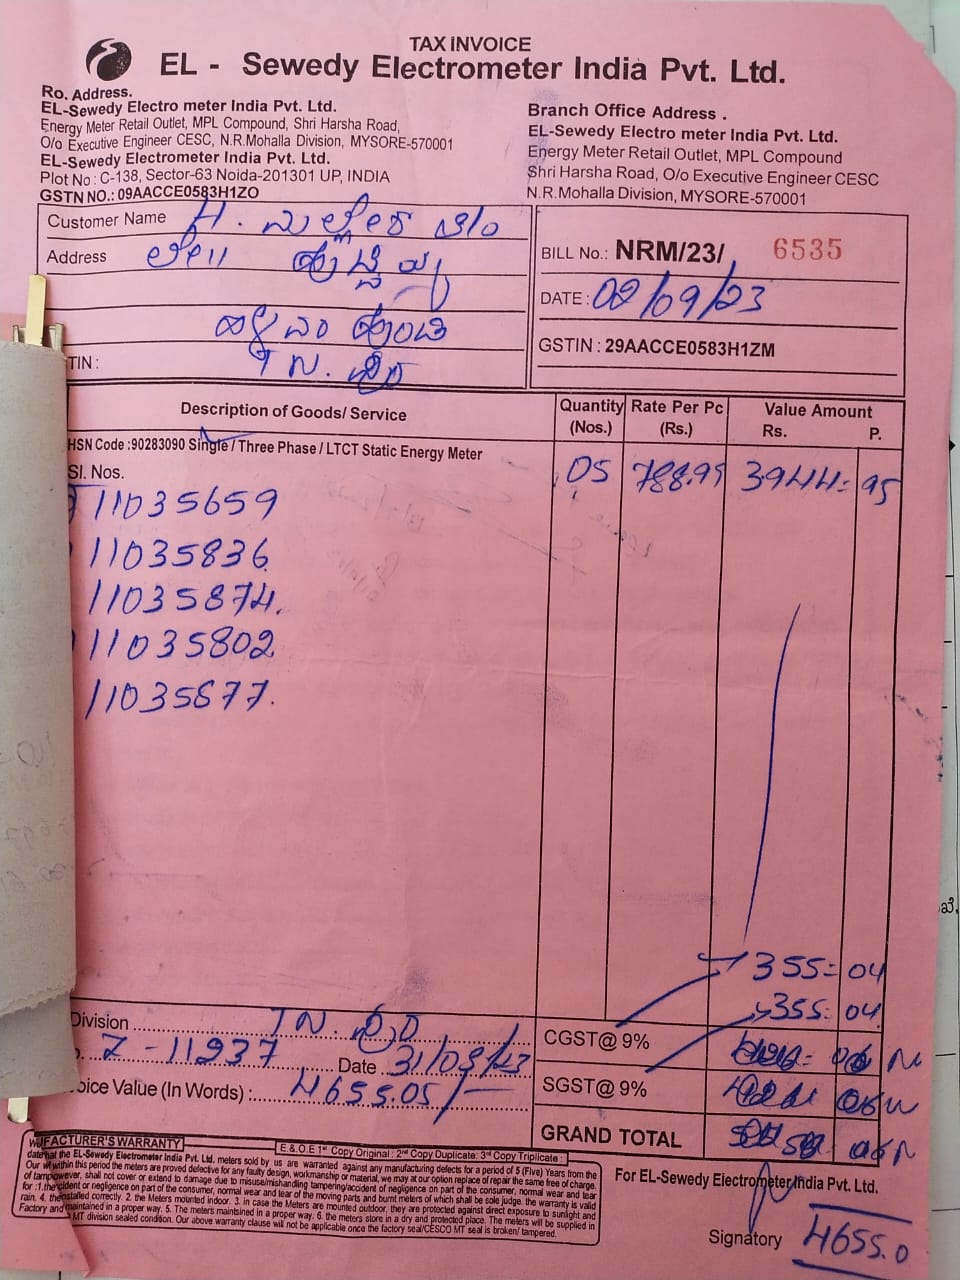 TAX INVOICE
EL - Sewedy Electrometer India Pvt. Ltd.
Ro. Address.
EL-Sewedy Electro meter India Pvt. Ltd.
Energy Meter Retail Outlet, MPL Compound, Shri Harsha Road,
O/o Executive Engineer CESC, N.R.Mohalla Division, MYSORE-570001
EL-Sewedy Electrometer India Pvt. Ltd.
Plot No : C-138, Sector-63 Noida-201301 UP, INDIA
GSTN NO.: 09AACCE0583H1ZO
Branch Office Address .
EL-Sewedy Electro meter India Pvt. Ltd.
Energy Meter Retail Outlet, MPL Compound
Shri Harsha Road, O/o Executive Engineer CESC
N.R.Mohalla Division, MYSORE-570001
Customer Name
Address
TIN :
BILL No.: NRM/23/ 6535
DATE : 02/09/23
GSTIN : 29AACCE0583H1ZM
Description of Goods/ Service
Quantity (Nos.)
Rate Per Pc (Rs.)
Value Amount
Rs. P.
HSN Code :90283090 Single / Three Phase / LTCT Static Energy Meter
05 788.99 3944=95
Sl. Nos.
11035659
11035836
11035874.
11035802
11035877.
355=04
355=04
Division
Z-11937 Date 31/08/23
oice Value (In Words) : 4655.05/-
CGST@ 9%
SGST@ 9%
GRAND TOTAL
UFACTURER'S WARRANTY
E.& O.E 1st Copy Original : 2nd Copy Duplicate: 3rd Copy Triplicate :
date that the EL-Sewedy Electrometer India Pvt. Ltd. meters sold by us are warranted against any manufacturing defects for a period of 5 (Five) Years from the
Our within this period the meters are proved defective for any faulty design, workmanship or material, we may at our option replace of repair the same free of charge.
of tampowever, shall not cover or extend to damage due to misuse/mishandling tampering/accident of negligence on part of the consumer, normal wear and tear
for :1.the incident or negligence on part of the consumer, normal wear and tear of the moving parts and burnt meters of which shall be sole judge. the warranty is valid
rain. 4. the installed correctly. 2. the Meters mounted indoor. 3. in case the Meters are mounted outdoor, they are protected against direct exposure to sunlight and
Factory and maintained in a proper way. 5. The meters maintsined in a proper way. 6. the meters store in a dry and protected place. The meters will be supplied in
MT division sealed condition. Our above warranty clause will not be applicable once the factory seal/CESCO MT seal is broken/ tampered.
For EL-Sewedy Electrometer India Pvt. Ltd.
Signatory
4655.0